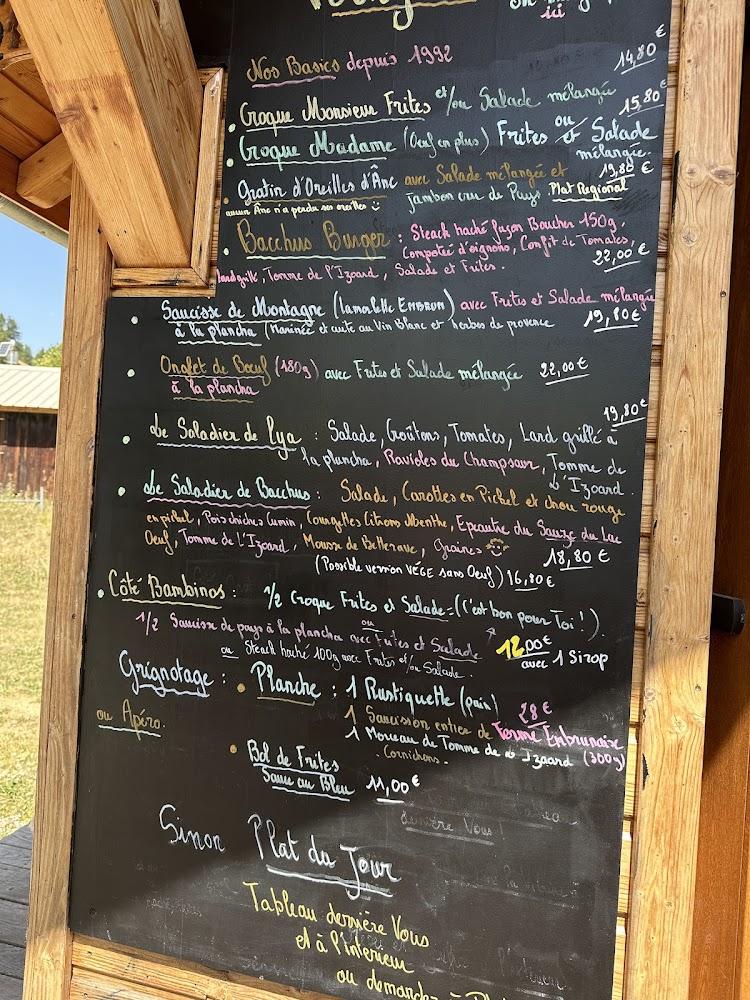 ici
Nos Basics depuis 1992
14,80 €
Croque Monsieur Frites et/ou Salade mélangée
15,80 €
Croque Madame (Oeuf en plus) Frites ou/et Salade
mélangée.
19,80 €
Gratin d'Oreilles d'Âne avec Salade mélangée et
aucun Âne n'a perdu ses oreilles jambon cru de Pays. Plat Regional
Bacchus Burger : Steack haché façon Boucher 150g,
Compotée d'oignons, Confit de Tomates,
Lard grillé, Tomme de l'Izoard, Salade et Frites.
22,00 €
Saucisse de Montagne (Lamalette EMBRUN) avec Frites et Salade mélangée
à la plancha (Marinée et cuite au Vin Blanc et herbes de provence
19,80 €
Onglet de Boeuf (180g) avec Frites et Salade mélangée 22,00 €
à la plancha
19,80 €
Le Saladier de Lya : Salade, Croûtons, Tomates, Lard grillé à
la plancha, Ravioles du Champsaur, Tomme de
l'Izoard.
Le Saladier de Bacchus : Salade, Carottes en Pickel et chou rouge
en pikel, Pois chiches Cumin, Courgettes Citrons Menthe, Epeautre du Sauze du Lac
Oeuf, Tomme de L'Izoard, Mousse de Betterave, Graines
18,80 €
(Possible version VÉGÉ sans Oeuf) 16,80 €
Côté Bambinos : 1/2 Croque Frites et Salade = (C'est bon pour Toi !).
ou
1/2 Saucisse de pays à la plancha avec Frites et Salade
ou Steack haché 100g avec Frites et/ou Salade.
12,00 €
avec 1 Sirop
Grignotage : Planche : 1 Rustiquette (pain)
ou Apéro.
28 €
1 Saucisson entier de Ferme Embrunaise
1 Morceau de Tomme de l'Izoard (300g)
Cornichons.
Bol de Frites
Sauce au Bleu 11,00 €
derrière Vous !
Sinon Plat du Jour
Tableau derrière Vous
et à l'interieur